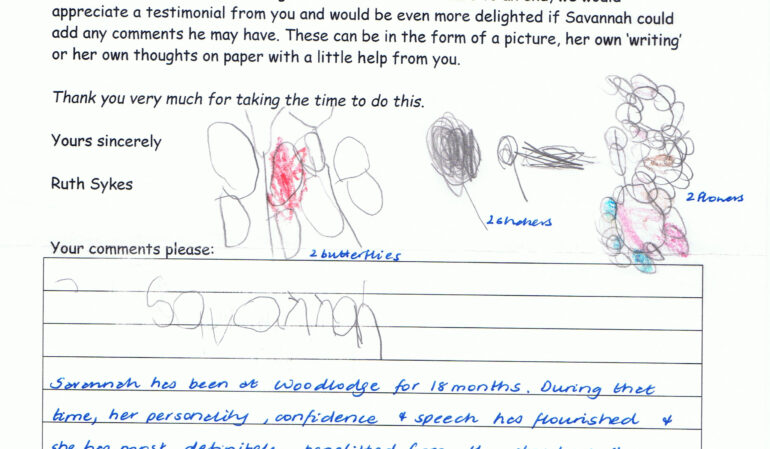 appreciate a testimonial from you and would be even more delighted if Savannah could
add any comments he may have. These can be in the form of a picture, her own ‘writing’
or her own thoughts on paper with a little help from you.
Thank you very much for taking the time to do this.
Yours sincerely
Ruth Sykes
2 flowers
2 butterflies
Your comments please:
Savannah
Savannah has been at Woodlodge for 18 months. During that
time, her personality, confidence & speech has flourished &
she has most definitely